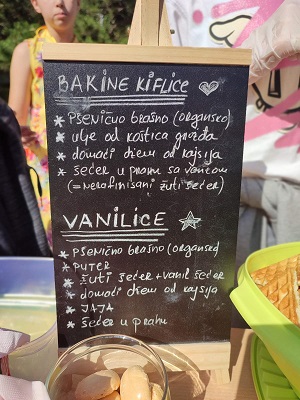 BAKINE KIFLICE
* PŠENIČNO BRAŠNO (ORGANSKO)
* ulje od koštica grožđa
* domaći džem od kajsija
* šećer u prahu sa vanilom
(= nerafinisani žuti šećer)
VANILICE
* PŠENIČNO BRAŠNO (organsko)
* PUTER
* žuti šećer + vanil šećer
* domaći džem od kajsija
* JAJA
* šećer u prahu